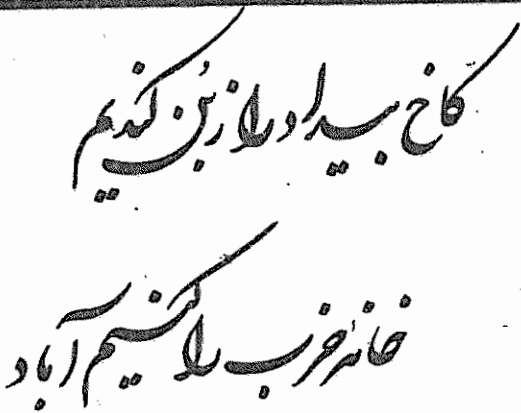 کاخ بیداد را از بُن کندیم
خانهٔ حزب را کنیم آباد